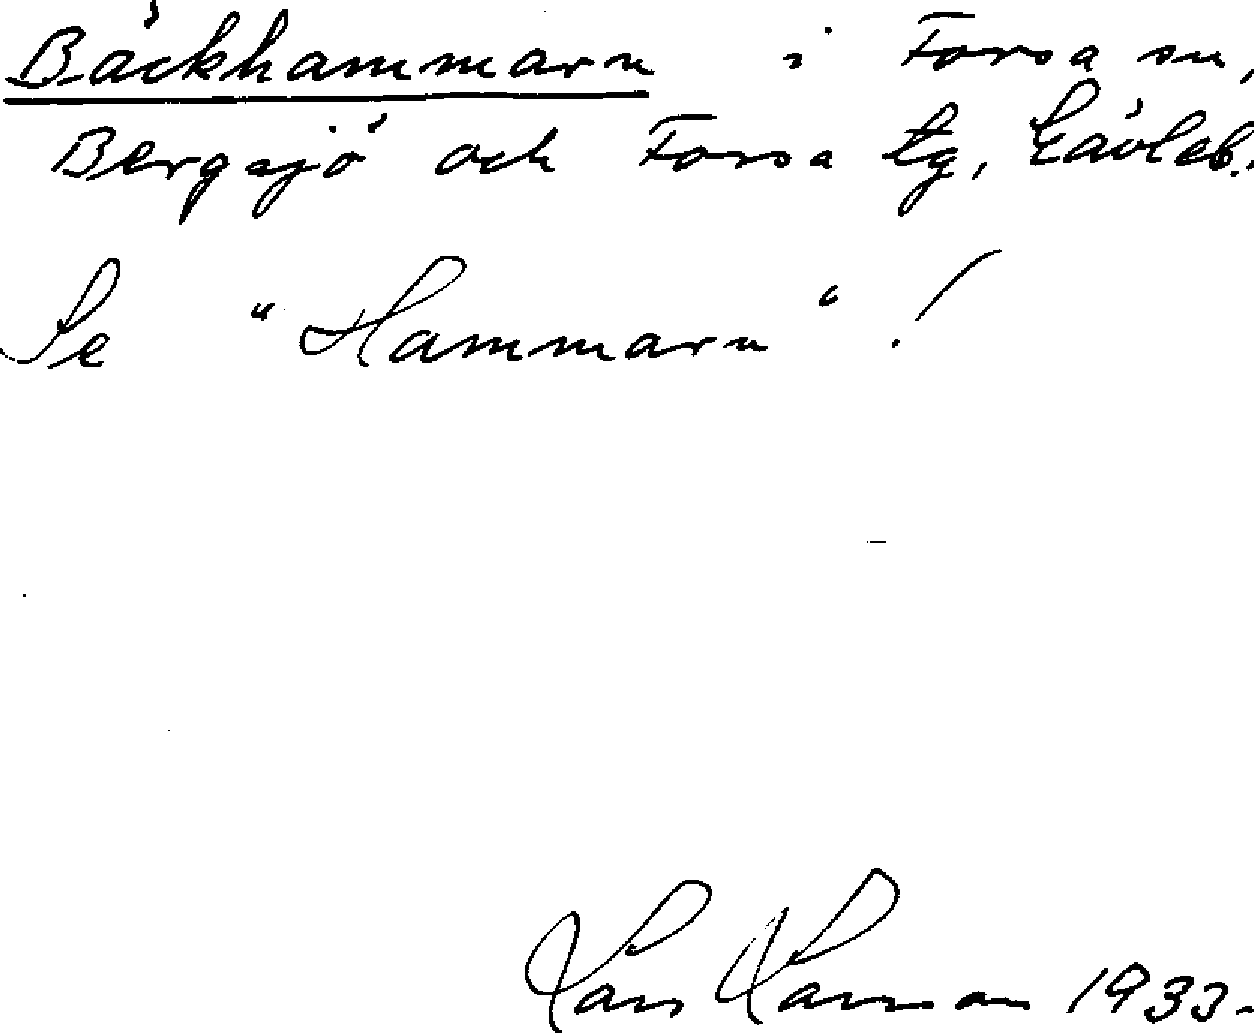 Bäckhammarn i Forsa sn,
Bergsjö och Forsa tg, Gävleb.
Se "Hammarn"!
Lars Larsson 1933.